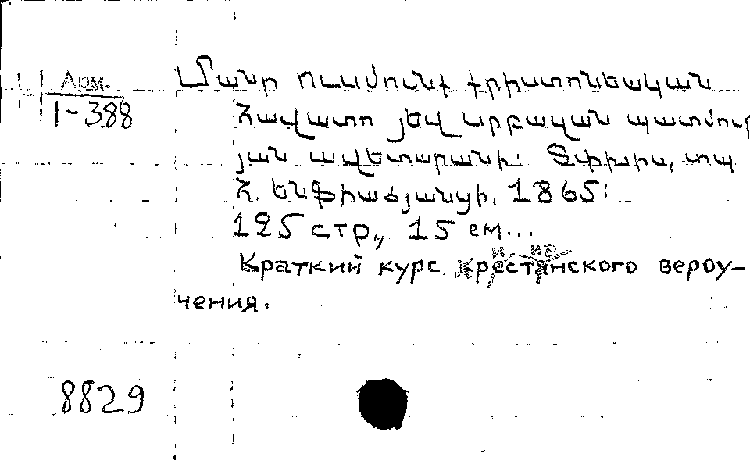 Арм.
1-388
Մանր ուսմունք քրիստոնեական
հավատո յեվ սրբական պատմու
յան ավետարանի: Տփխիս, տպ.
Հ. Ենֆիաճյանցի, 1865:
125 стр., 15 см...
Краткий курс христианского вероу-
чения.
8829